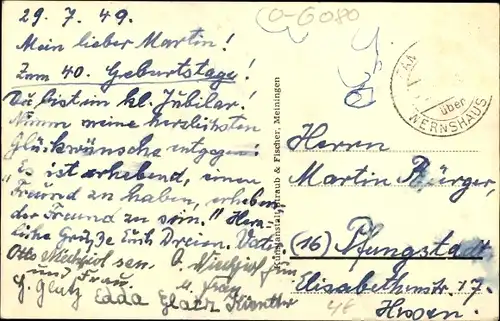 29. 7. 49.
Mein lieber Martin!
Zum 40. Geburtstage!
Du bist ein kl. Jubilar!
Nimm meine herzlichsten
Glückwünsche entgegen!
"Es ist erhebend, einen
Freund zu haben, erhebender
der Freund zu sein." Herz-
liche Grüße Euch Dreien. Vater
Otto sen.
und Frau.
u. Frau
Edda
O-6080
über
WERNSHAUS
Kunstanstalt Straub & Fischer, Meiningen
Herrn
Martin Bürger,
(16) Pfungstadt
Elisabethenstr. 17.
Hessen.